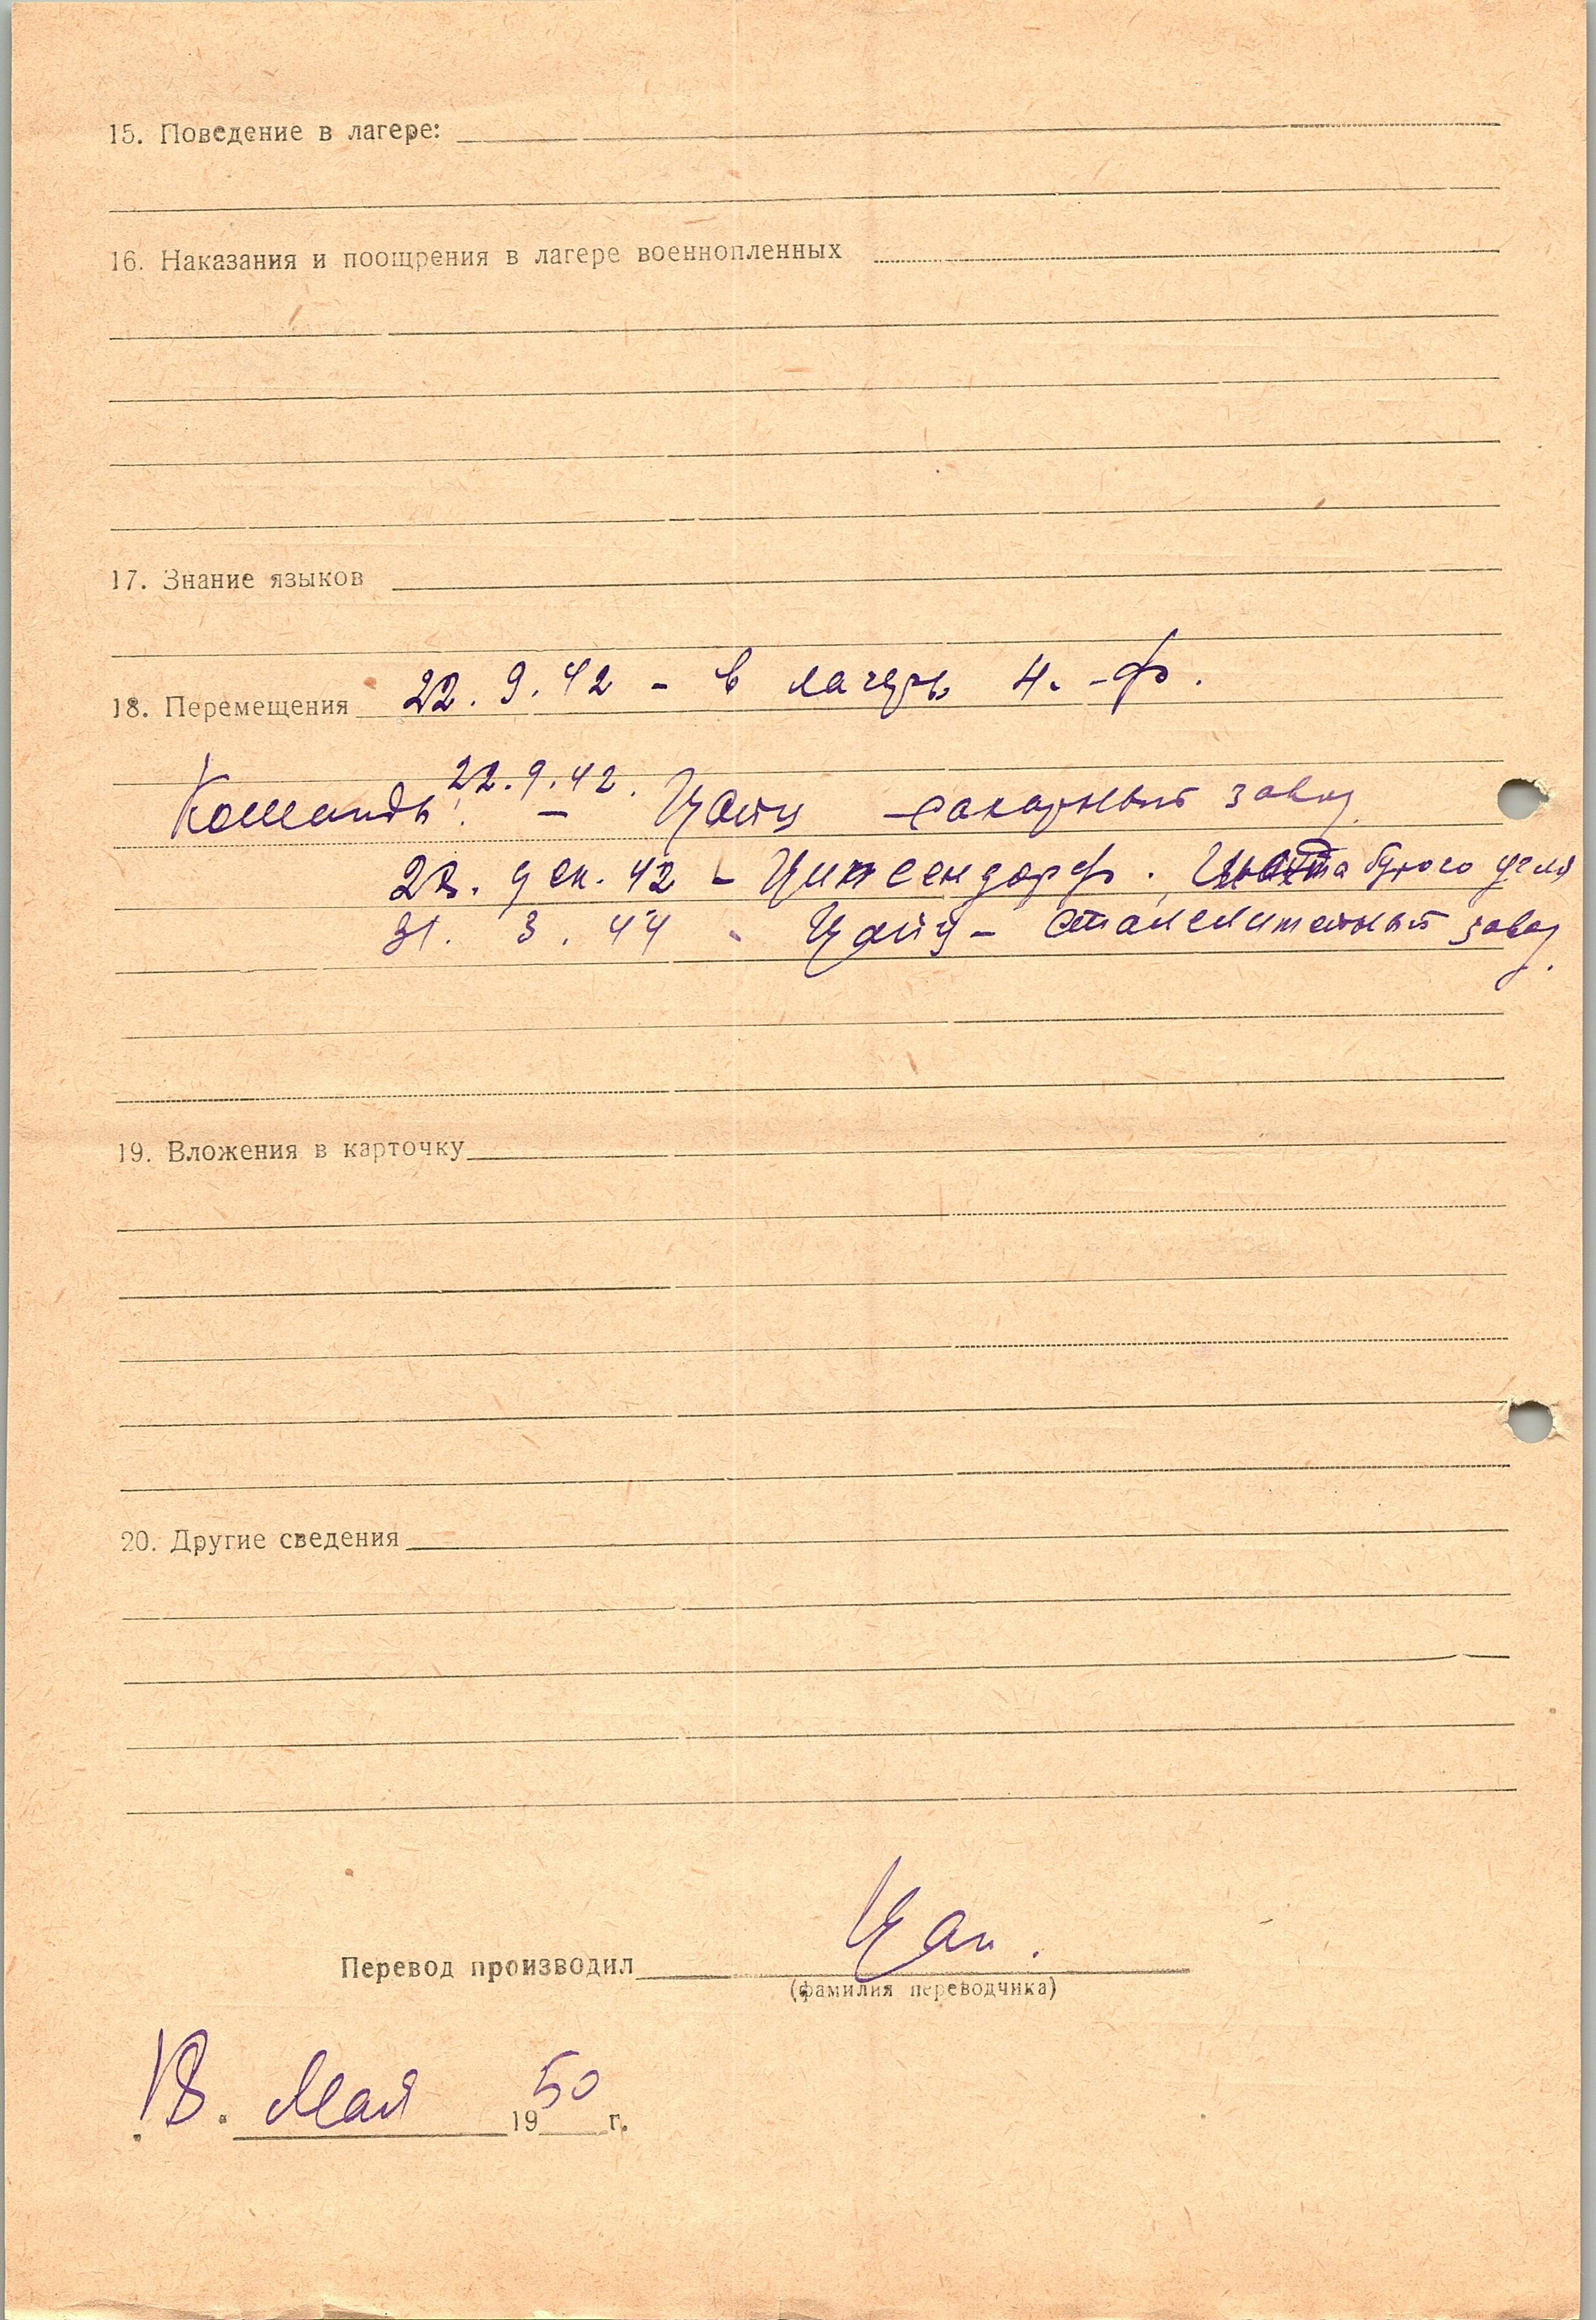 15. Поведение в лагере:
16. Наказания и поощрения в лагере военнопленных
17. Знание языков
18. Перемещения 22. 9. 42 - в лагерь 4. -Ф.
22. 9. 42.
Команды: - Цайц сахарный завод
22. дек. 42 - Ципсендорф. Шахта бурого угля
31. 3. 44 - Цайц - Сталелитейный завод.
19. Вложения в карточку
20. Другие сведения
Перевод производил Цап.
(фамилия переводчика)
18. Мая 1950 г.